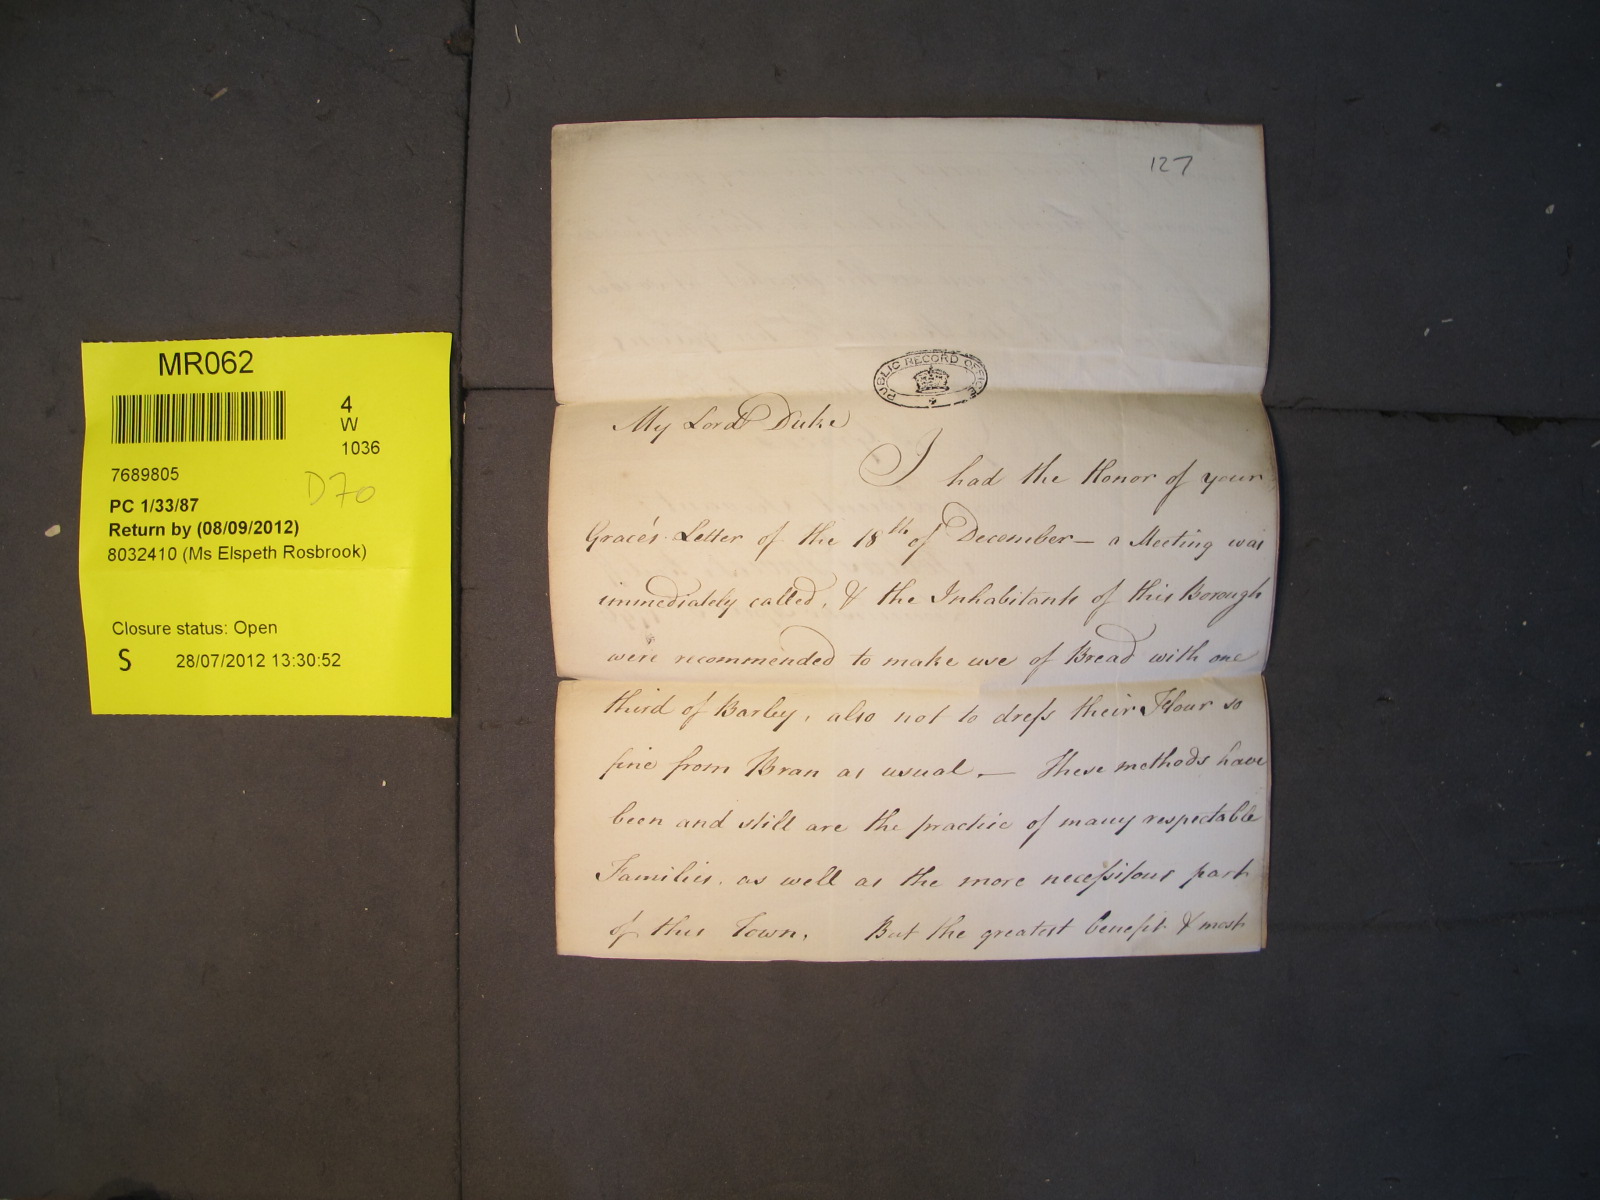 MR062
4
W
1036
7689805
D70
PC 1/33/87
Return by (08/09/2012)
8032410 (Ms Elspeth Rosbrook)
Closure status: Open
S 28/07/2012 13:30:52
127
PUBLIC RECORD OFFICE
My Lord Duke
I had the Honor of your
Grace's Letter of the 18th of December — a Meeting was
immediately called, & the Inhabitants of this Borough
were recommended to make use of Bread with one
third of Barley, also not to dreſs their Flour so
fine from Bran as usual. — These methods have
been and still are the practice of many respectable
Families, as well as the more neceſsitous part
of this Town. But the greatest benefit & most